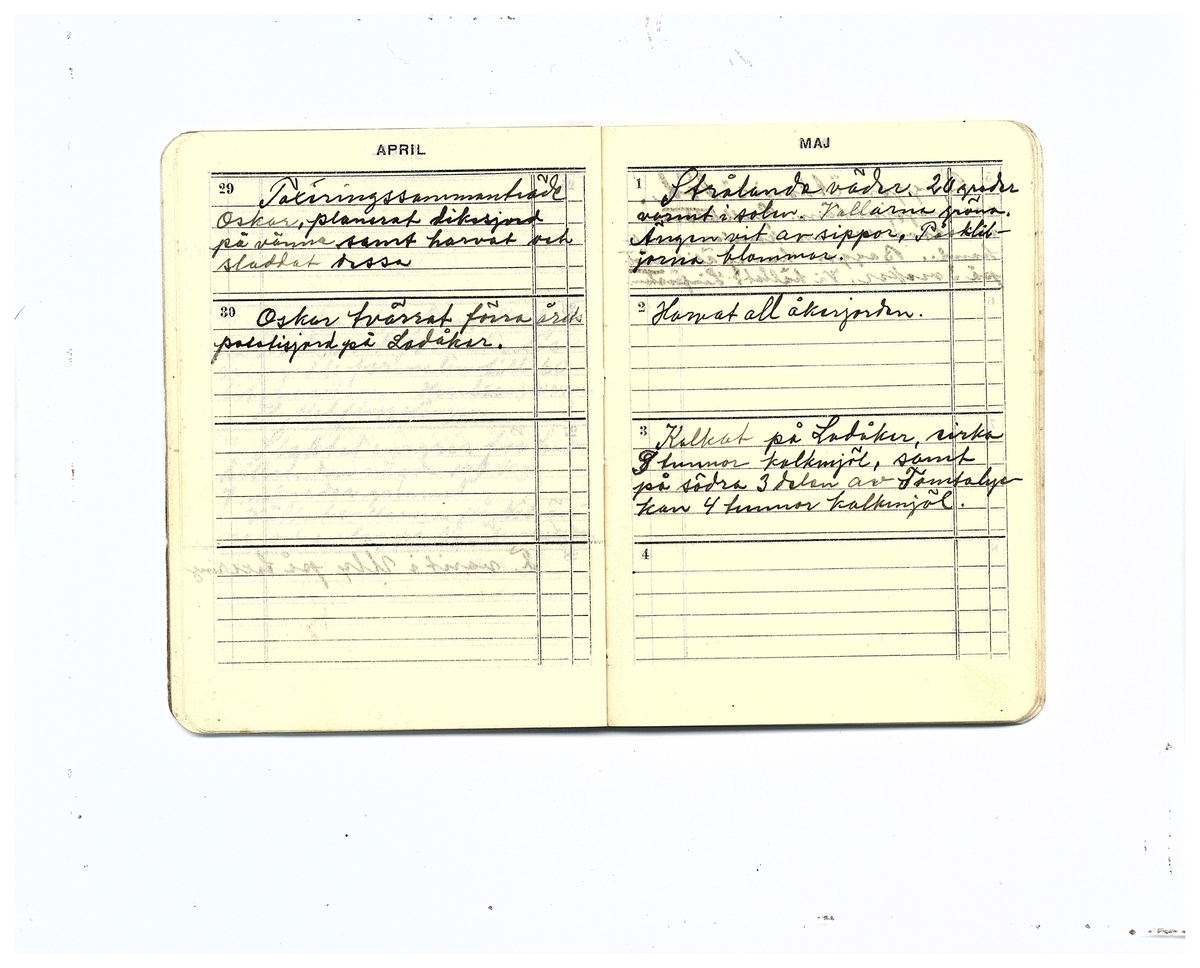 APRIL
29 Taxeringssammanträde
Oskar, planerat dikesjord
på vänne samt harvat och
sladdat dessa
30 Oskar tvärrat förra årets
potatisjord på Ladåker.
MAJ
1 Strålande väder. 20 grader
varmt i solen. Vallarna gröna.
Ängen vit av sippor, Påsklil-
jorna blommar.
2 Harvat all åkerjorden.
3 Kalkat på Ladåker, cirka
8 tunnor kalkmjöl, samt
på södra 3 delen av Tomtalyc-
kan 4 tunnor kalkmjöl.
4